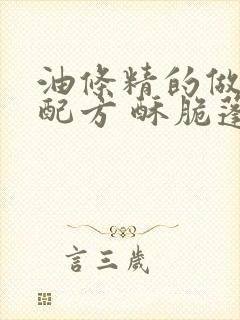 油條精的做
配方 酥脆蓬
言三歲